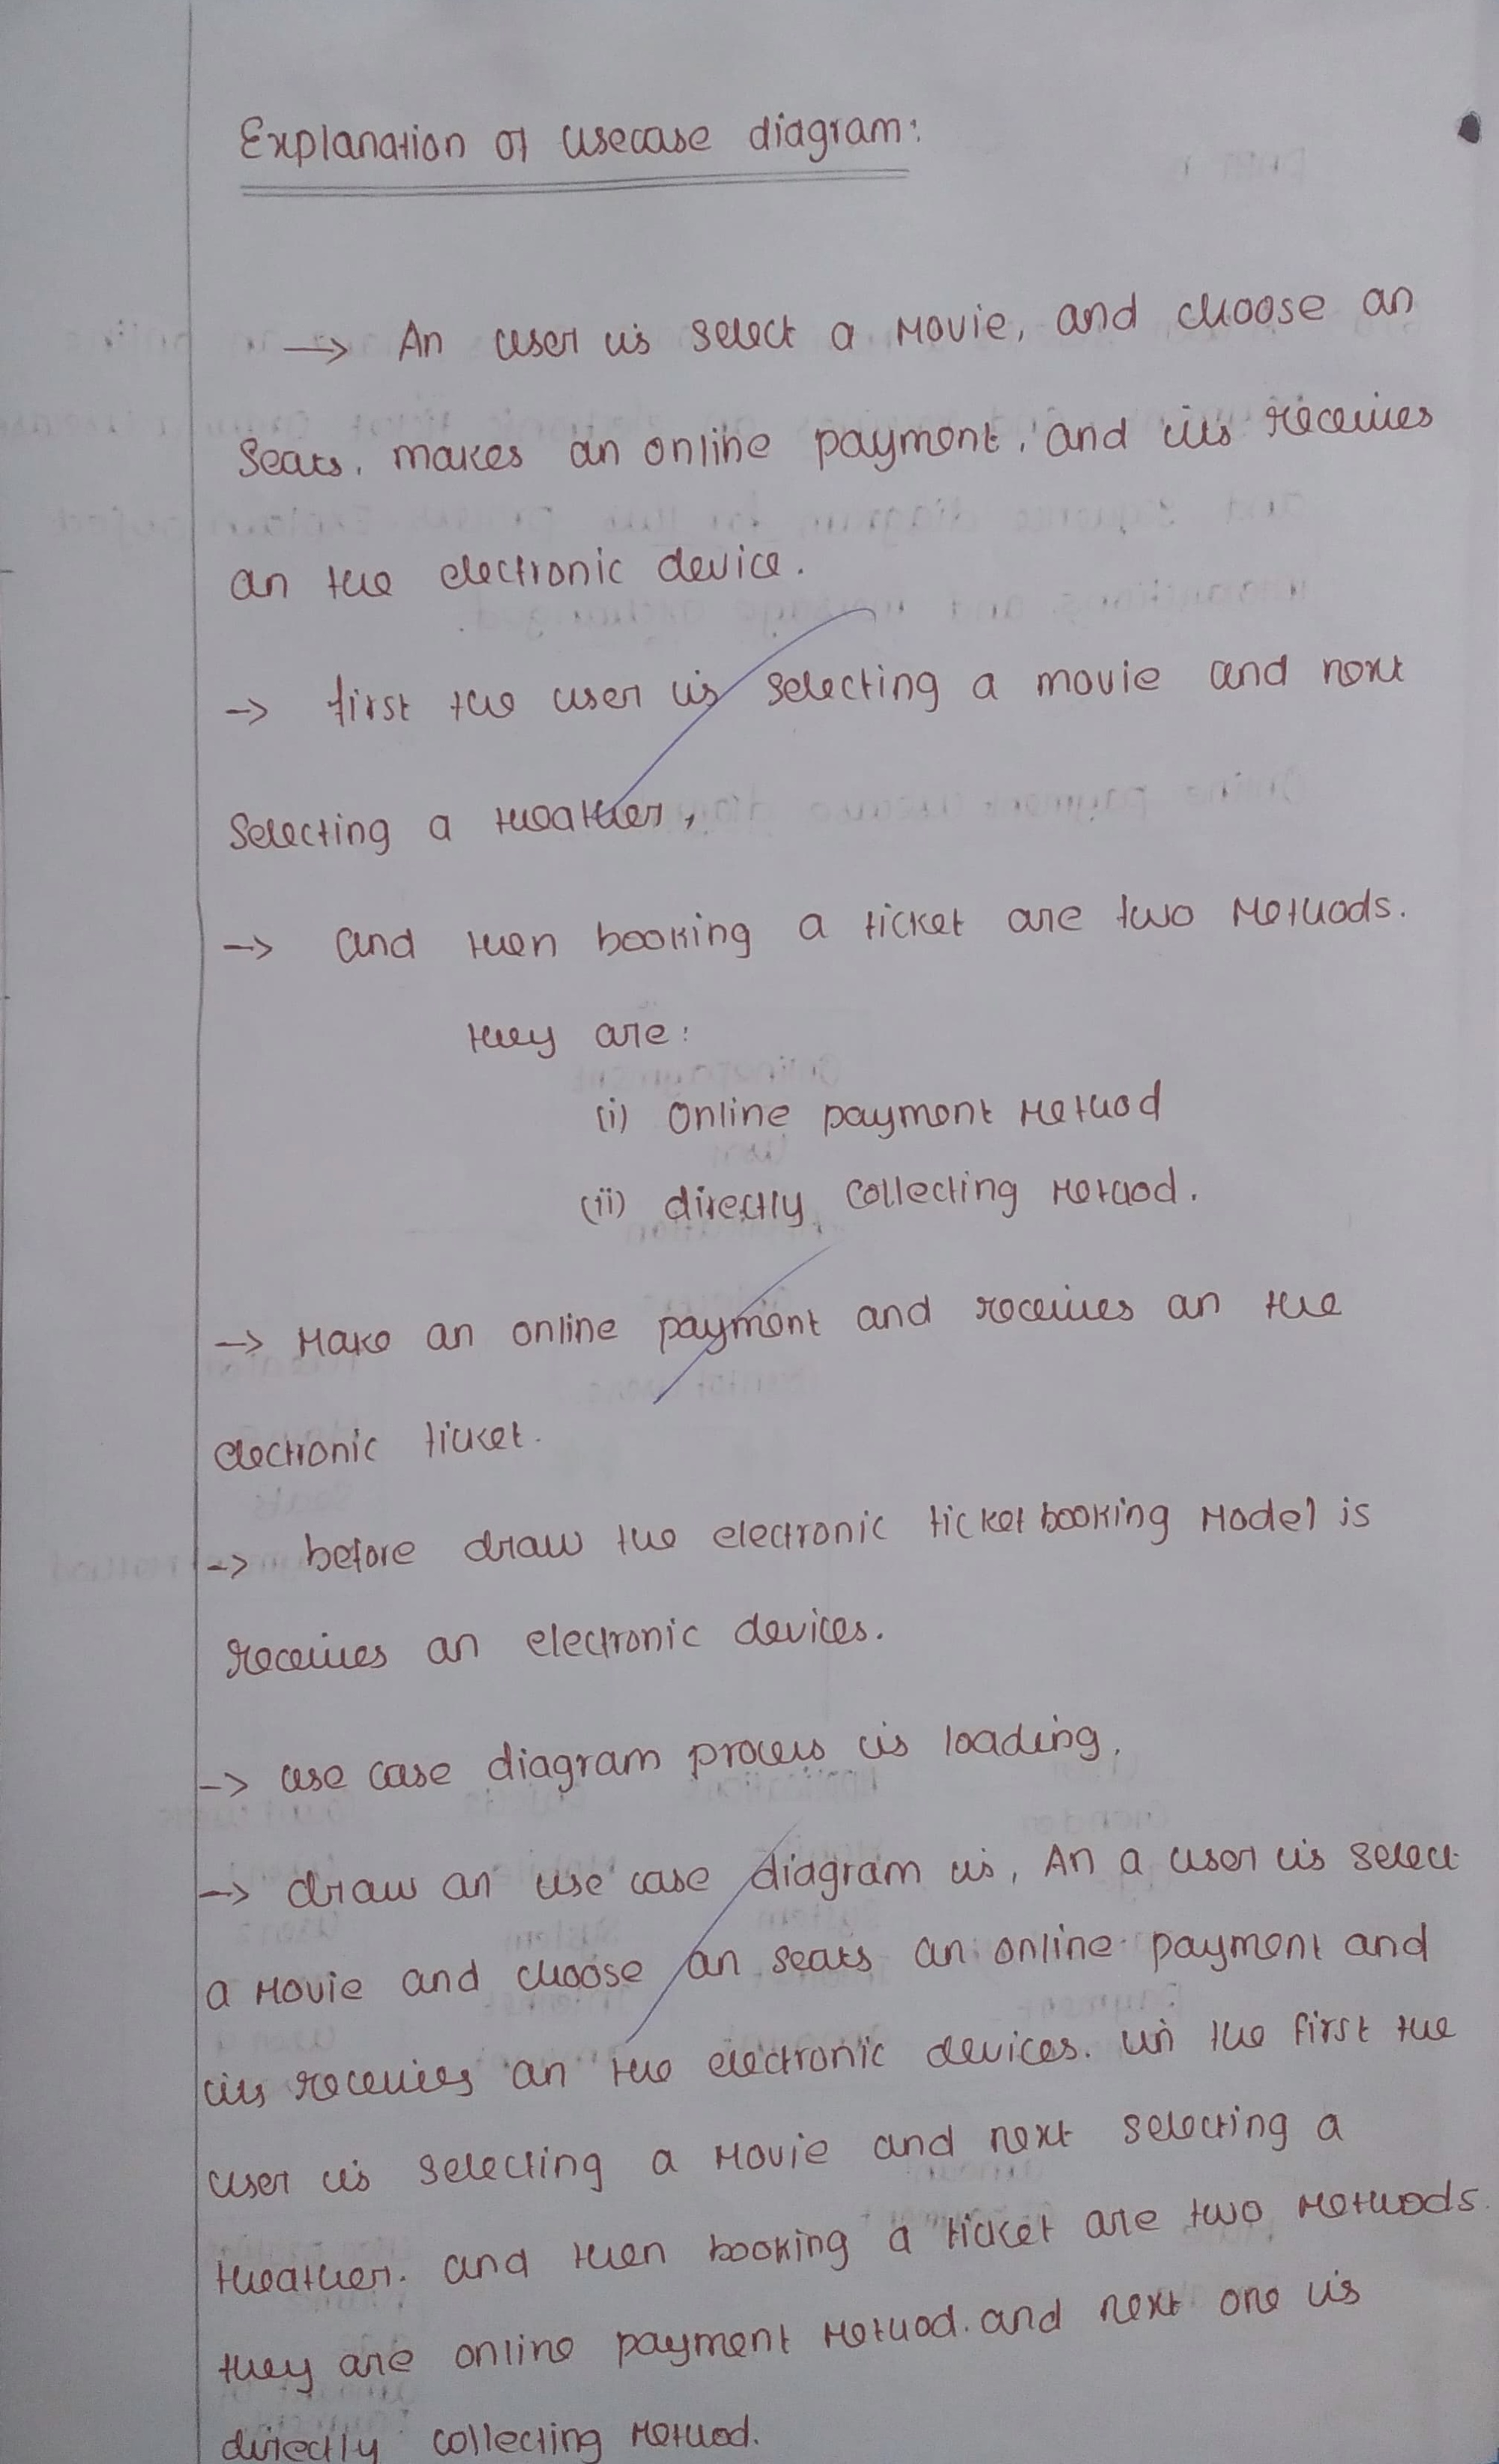 Explanation of usecase diagram:
→ An user is select a Movie, and choose an
Seats. makes an online payment, and its receives
an the electronic device.
→ first the user is selecting a movie and next
Selecting a theather,
→ and then booking a ticket are two Methods.
they are:
(i) Online payment Method
(ii) directly collecting Method.
→ Make an online payment and receives an the
electronic ticket.
→ before draw the electronic ticket booking Model is
receives an electronic devices.
→ use case diagram process is loading.
→ draw an use case diagram is, An a user is select
a Movie and choose an seats an online payment and
its receives an the electronic devices. in the first the
user is selecting a Movie and next selecting a
theather. and then booking a ticket are two Methods.
they are online payment Method. and next one is
directly collecting Method.